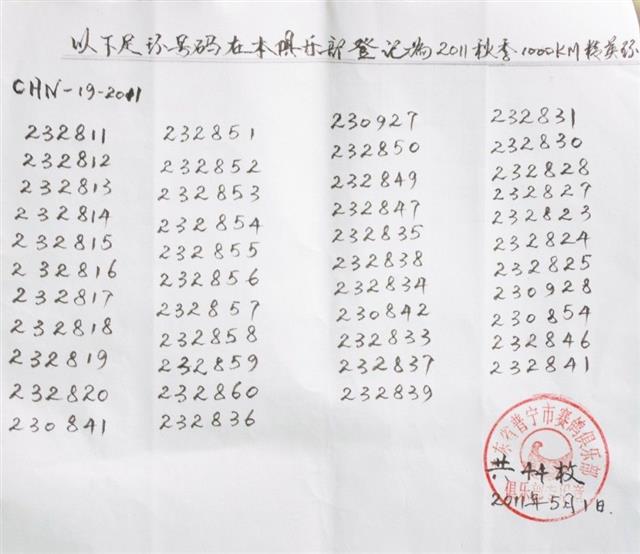 以下足环号码在本俱乐部登记为2011秋季1000KM精英环
CHN-19-2011
232811
232812
232813
232814
232815
232816
232817
232818
232819
232820
230841
232851
232852
232853
232854
232855
232856
232857
232858
232859
232860
232836
230927
232850
232849
232847
232835
232838
232834
230842
232833
232837
232839
232831
232830
232828
232827
232823
232824
232825
230928
230854
232846
232841
东省普宁市赛鸽俱乐部
共44枚
俱乐部
2011年5月1日.